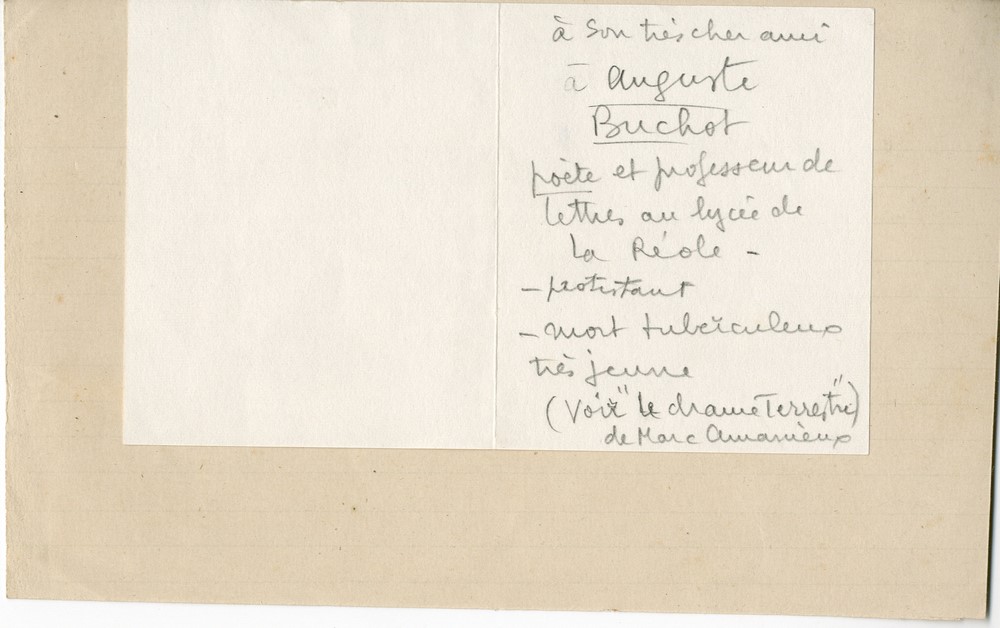 à son très cher ami
à Auguste
Buchot
poète et professeur de
lettres au lycée de
La Réole -
- protestant
- mort tuberculeux
très jeune
(Voir "Le drame Terrestre")
de Marc Amanieux